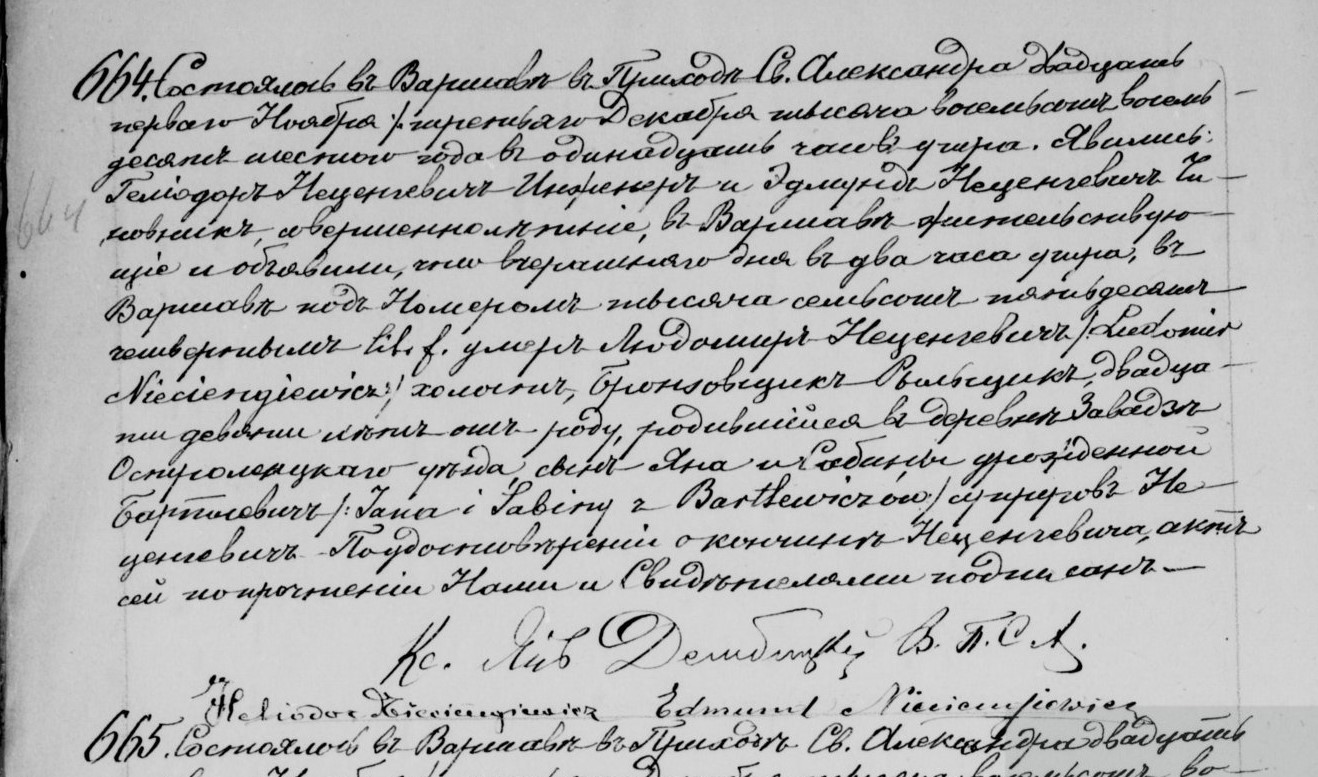 664. Состоялось въ Варшавѣ въ Приходѣ Св. Александра двадцать
перваго Ноября /: третьяго Декабря тысяча восемьсотъ восемь
десятъ шестого года въ одинадцать часовъ утра. Явились:
Геліодоръ Неценгевичъ Инженеръ и Эдмундъ Неценгевичъ Чи-
новникъ, совершеннолѣтніе, въ Варшавѣ жительствую-
щіе и объявили, что вчерашняго дня въ два часа утра, въ
664
Варшавѣ подъ Номеромъ тысяча семьсотъ пятьдесятъ
четвертымъ lit. f. умеръ Людомиръ Неценгевичъ /: Ludomir
Nieciengiewicz :/ холостъ, Бронзовщикъ Рыльщикъ, двадца-
ти девяти лѣтъ отъ роду, родившійся въ деревнѣ Завадзѣ
Остроленцкаго уѣзда, сынъ Яна и Сабины урожденной
Бартлевичъ /: Jana i Sabiny z Bartlewiczów :/ супруговъ Не-
ценгевичъ. По удостовѣреніи о кончинѣ Неценгевича, актъ
сей по прочтеніи Нами и Свидѣтелями подписанъ.—
Кс. Янъ Дембицкій В. П. С. А.
Heliodor Nieciengiewicz Edmund Nieciengiewicz
665. Состоялось въ Варшавѣ въ Приходѣ Св. Александра двадцать